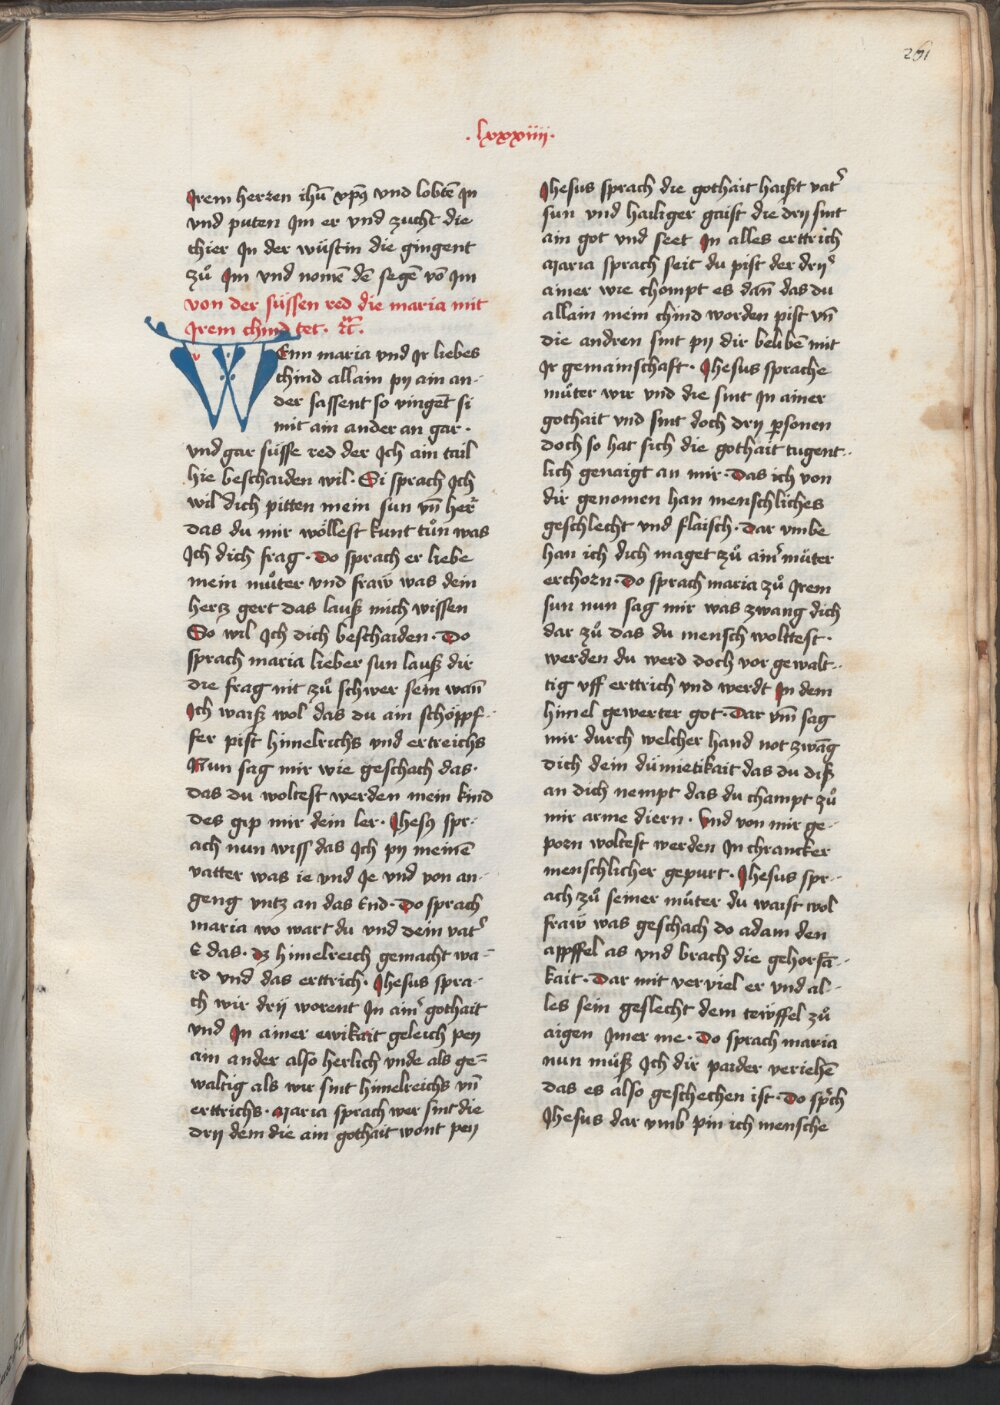 261
· lxxxiiii ·
Irem herzen ihū xp̄ꝫ vnd lobtē In
vnd puten Im er vnd zucht die
thier In der wůstin die gingent
zů Im vnd nomē dē segē vō Im
von der süssen red die maria mit
Irem chind tet. rc̄.
WEnn maria vnd Ir liebes
chind allain pÿ ain an-
der sassent so vingēt si
mit ain ander an gar ·
vnd gar süsse red der Ich ain tail
hie beschaiden wil · Si sprach Ich
wil dich pitten mein sun vn̄ her̄
das du mir wöllest kunt tůn was
Ich dich frag · Do sprach er liebe
mein můter vnd fraw was dein
hertz gert das lauß mich wissen
So wil Ich dich beschaiden · Do
sprach maria lieber sun lauß dir
die frag nit zů schwer sein wan̄
Ich waiß wol das du ain schöppf-
fer pist himelrichs vnd ertreichs
Nun sag mir wie geschach das ·
das du woltest werden mein kind
des gip mir dein ler · Jhesꝰ spr-
ach nun wiss das Ich pÿ meinē
vatter was ie vnd Je vnd von an-
geng vntz an das End · Do sprach
maria wo wart du vnd dein vatʾ
E das · dꝫ himelreich gemacht wa-
rd vnd das erttrich · Jhesus spra-
ch wir drÿ worent In aimʾ gothait
vnd In ainer ewikait geleich peÿ
ain ander also herlich vnde als ge-
waltig als wir sint himelreichs vn̄
erttrichs · Maria sprach wer sint die
drÿ dem die ain gothait wont peÿ
Jhesus sprach die gothait haißt vatʾ
sun vnd hailiger gaist die drÿ sint
ain got vnd seet In alles erttrich
Maria sprach seit du pist der drÿʾ
ainer wie chompt es dan̄ das du
allain mein chind worden pist vn̄
die andren sint pÿ dir belibē mit
Ir gemainschaft · Jhesus sprache
můter wir vnd die sint In ainer
gothait vnd sint doch drÿ ꝑsonen
doch so hat sich die gothait tugent-
lich genaigt an mir · Das ich von
dir genomen han menschliches
geschlecht vnd flaisch · Dar vmbe
han ich dich maget zů aimʾ můter
erchorn · Do sprach maria zů Irem
sun nun sag mir was zwang dich
dar zů das du mensch wolttest ·
werden du werd doch vor gewalt-
tig vff erttrich vnd werdt In dem
himel gewerter got · Dar vm̄ sag
mir durch welcher hand not zwāg
dich dein dümietikait das du diß
an dich nempt das du champt zů
mir arme diern · Vnd von mir ge-
porn woltest werden In chrancker
menschlicher gepurt · Jhesus spr-
ach zů seiner můter du waist wol
fraw was geschach do adam den
appffel as vnd brach die gehorsā-
kait · Dar mit verviel er vnd al-
les sein geslecht dem tewffel zů
aigen Imer me · Do sprach maria
nun můß Ich dir paider veriehē
das es also geschechen ist · Do sp̄ch
Jhesus dar vmb pin ich mensche